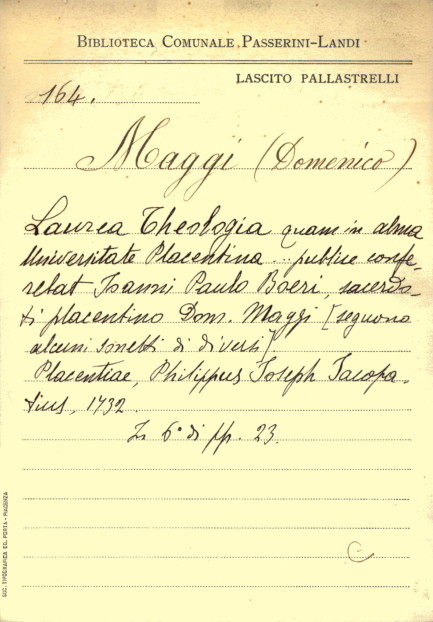 BIBLIOTECA COMUNALE PASSERINI-LANDI
LASCITO PALLASTRELLI
164.
Maggi (Domenico)
Laurea Theologia quam in alma
Universitate Placentina ... publice confe-
rebat Joanni Paulo Boeri, sacerdo-
ti placentino Dom. Maggi [seguono
alcuni sonetti di diversi]
Placentiae, Philippus Joseph Jacopa-
tius, 1732.
In 6° di pp. 23.
C
SOC. TIPOGRAFICA ED. PORTA - PIACENZA